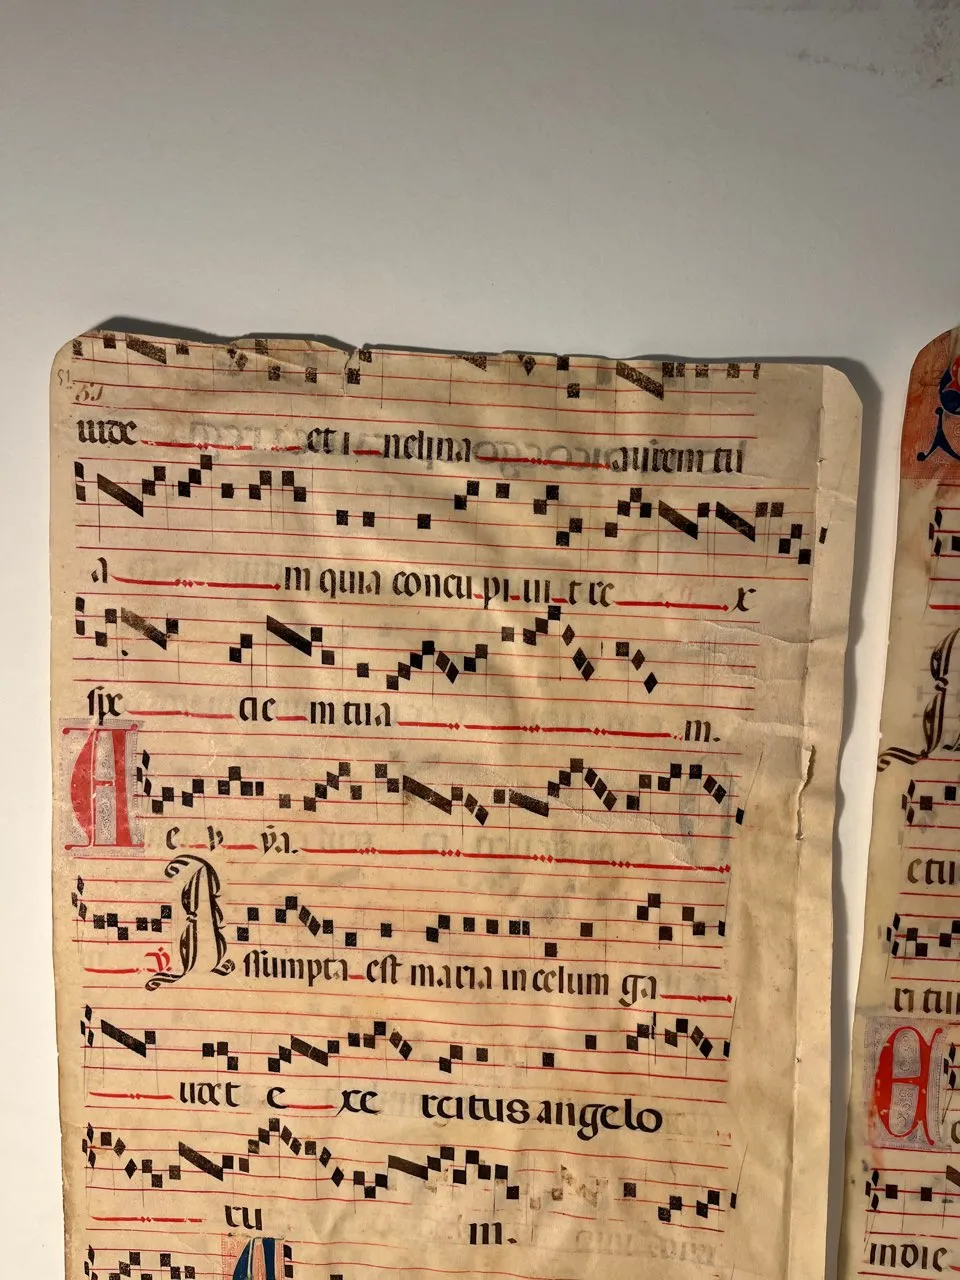 51
uide et i nclina aurem tu
a m quia concu pi ui t re x
spe cie m tua m.
A e v ya.
℣ Assumpta est maria in celum ga
udet e xe rcitus angelo
ru m.
ctu
ri tu
indie